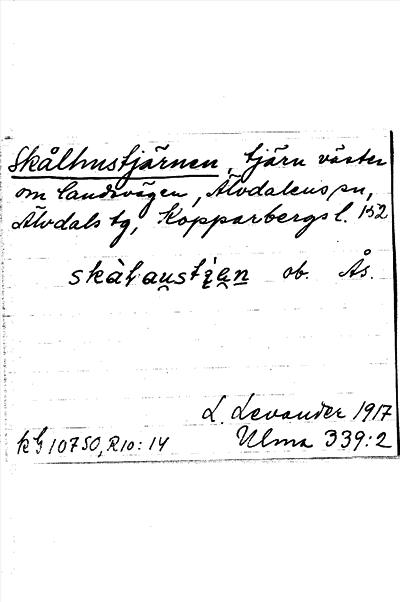 Skålhustjärnen, tjärn väster
om landsvägen, Älvdalens sn,
Älvdals tg, Kopparbergs l. 152
skàlaustiẹn ob. Ås.
L. Levander 1917
KG 10750, R10:14 Ulma 339:2